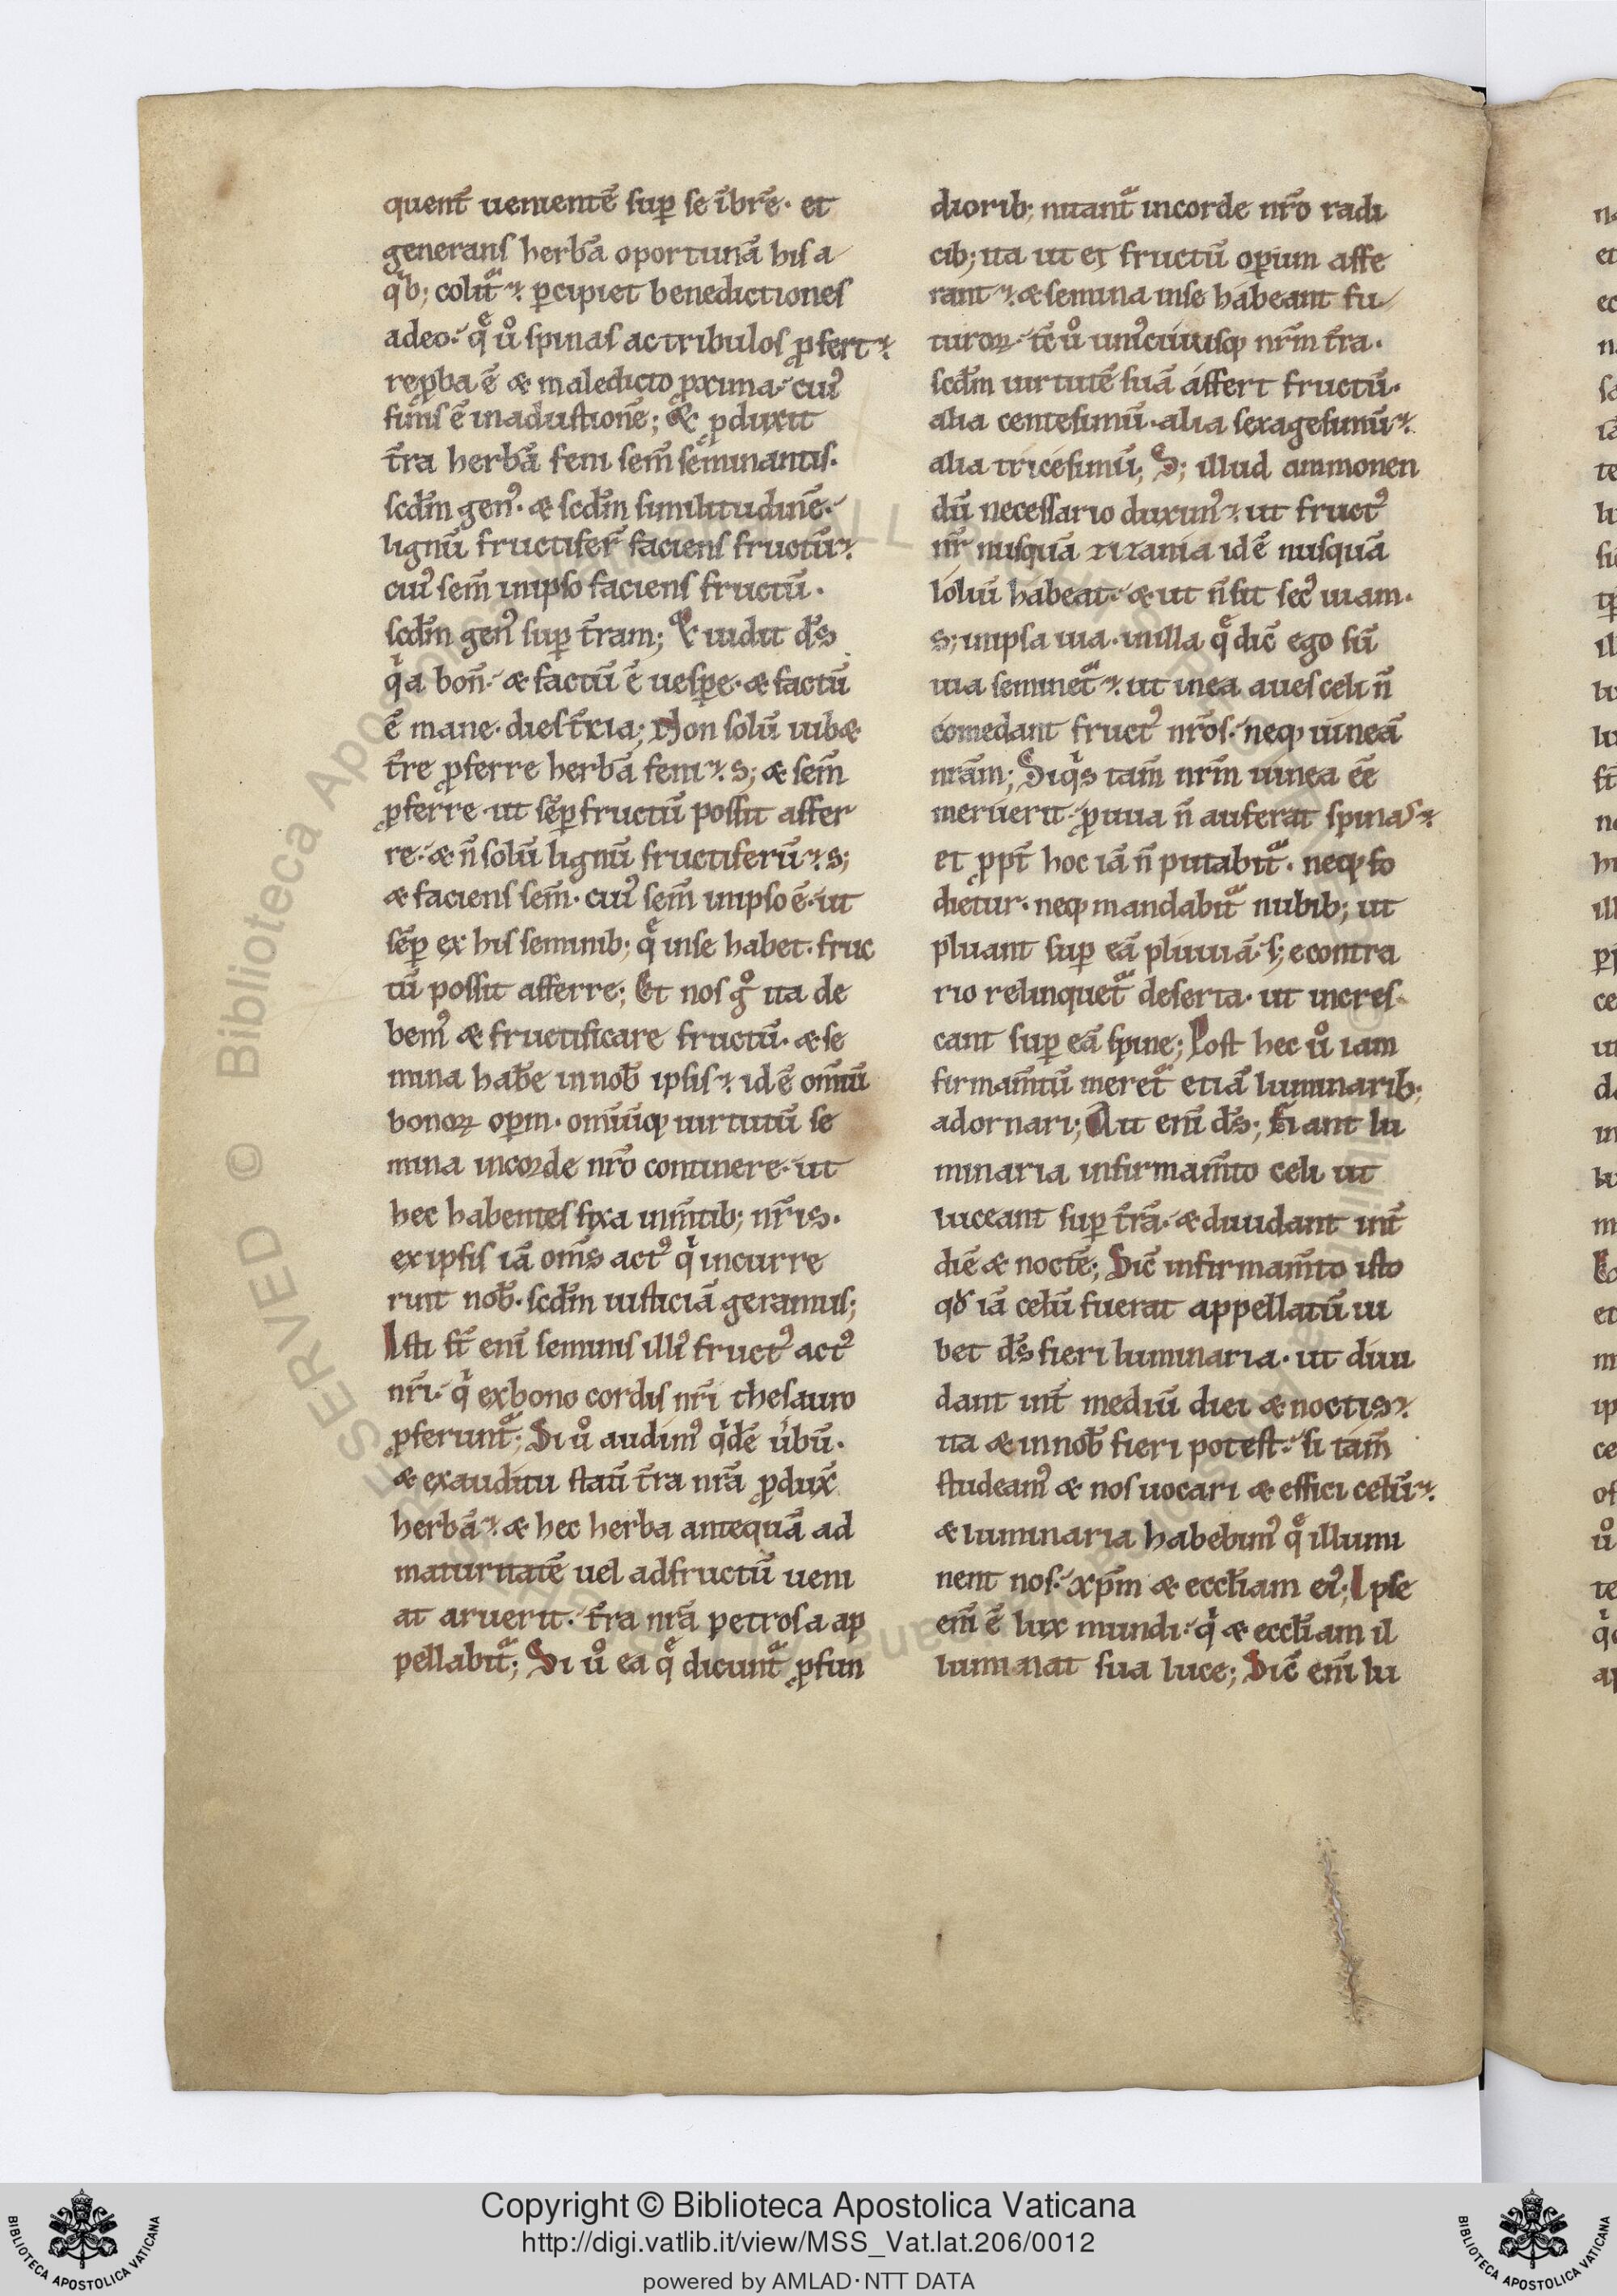 quent̄ uenientē sup̱ se ībrē· et
generans herbā oportunā his a
qͥb; colitᷓ· ꝑcipiet benedictiones
adeo· qͤ u̇ͦ spinas ac tribulos ꝓfert·
reꝓba ē & maledicto ꝓxima· cuiꝰ
finis ē in adustionē; & ꝓduxit
t̄ra herbā feni sem̄ seminantis·
scd̄m genꝰ· & scd̄m similitudinē·
lignū fructifer̄ faciens fructū·
cuiꝰ sem̄ in ipso faciens fructū·
scd̄m genꝰ sup̱ t̄ram; & uidit d̄s
qͥa bon̄· & factū ē uesꝑe· & factū
ē mane· dies t̄cia; Non solū iub&
t̄re ꝓferre herbā feni· s; & sem̄
ꝓferre· ut sēꝑ fructū possit affer
re· & n̄ solū lignū fructiferū· s;
& faciens sem̄· cuiꝰ sem̄ in ipso ē· ut
sēꝑ ex his seminib; qͤ in se habet· fruc
tū possit afferre; Et nos gͦ ita de
bemꝰ & fructificare fructū· & se
mina habe in nob̄ ipsis· id ē omniū
bonoꝝ oꝑm· omiūqꝫ uirtutū se
mina in corde nr̄o continere· ut
hec habentes fixa in m̄tib; nr̄is·
ex ipsis iā om̄s actꝰ qͥ incurre
rint nob̄· scd̄m iusticiā geramus;
Isti st̄ eni̅ seminis illiꝰ fructꝰ actꝰ
nr̄i· qͥ ex bono cordis nr̄i thesauro
ꝓferuntᷓ; Si uͦ audimꝰ qͥdē u̇bū·
& ex auditu stati̅ t̄ra nr̄a ꝓdux̄
herbā· & hec herba antequā ad
maturitatē uel ad fructū ueni
at aruerit· t̄ra nr̄a petrosa ap
pellabitᷓ; Si uͦ ea qͤ dicuntᷓ ꝓfun
diorib; nitantᷓ in corde nr̄o radi
cib; ita ut et fructū oꝑum affe
rant· & semina in se habeant fu
turoꝝ· tc̄ uͦ uniꝰcuiusqꝫ nr̄m t̄ra·
scd̄m uirtutē suā affert fructū·
alia centesimū· alia sexagesimū·
alia tricesimū; S; illud ammonen
dū necessario duximꝰ· ut fructꝰ
nr̄ nusquā zizania id ē nusquā
loliū habeat· & ut n̄ sit secꝰ uiam·
s; in ipsa uia· in illa qͤ dic̄ ego sū
uia seminetᷓ· ut in ea aues celi n̄
comedant fructꝰ nr̄os· neqꝫ uineā
nr̄am; Siqͥs tam̄ nr̄m uinea ēe
meruerit· ꝓ uua n̄ auferat spinas·
et ꝓpt̄ hoc iā n̄ putabitᷓ· neqꝫ fo
dietur· neqꝫ mandabitᷓ nubib; ut
pluant sup̱ eā pluuiā· s; e contra
rio relinquetᷓ deserta· ut incres
cant sup̱ eā spine; Post hec uͦ iam
firmam̄tū meretᷓ etiā luminarib;
adornari; Ait eni̅ d̄s; Fiant lu
minaria in firmam̄to celi ut
luceant sup̱ t̄rā· & diuidant int̄
diē & noctē; Dic̄ in firmam̄to isto
qd̄ iā celū fuerat appellatū iu
bet d̄s fieri luminaria· ut diui
dant int̄ mediū diei & noctis·
ita & in nob̄ fieri potest· si tam̄
studeamꝰ & nos uocari & effici celū·
& luminaria habebimꝰ qͤ illumi
nent nos· xp̄m & eccl̄iam eiꝰ; Ipse
eni̅ ē lux mundi· qͥ & eccl̄iam il
luminat sua luce; Sic̄ eni̅ lu
Copyright © Biblioteca Apostolica Vaticana
http://digi.vatlib.it/view/MSS_Vat.lat.206/0012
powered by AMLAD·NTT DATA